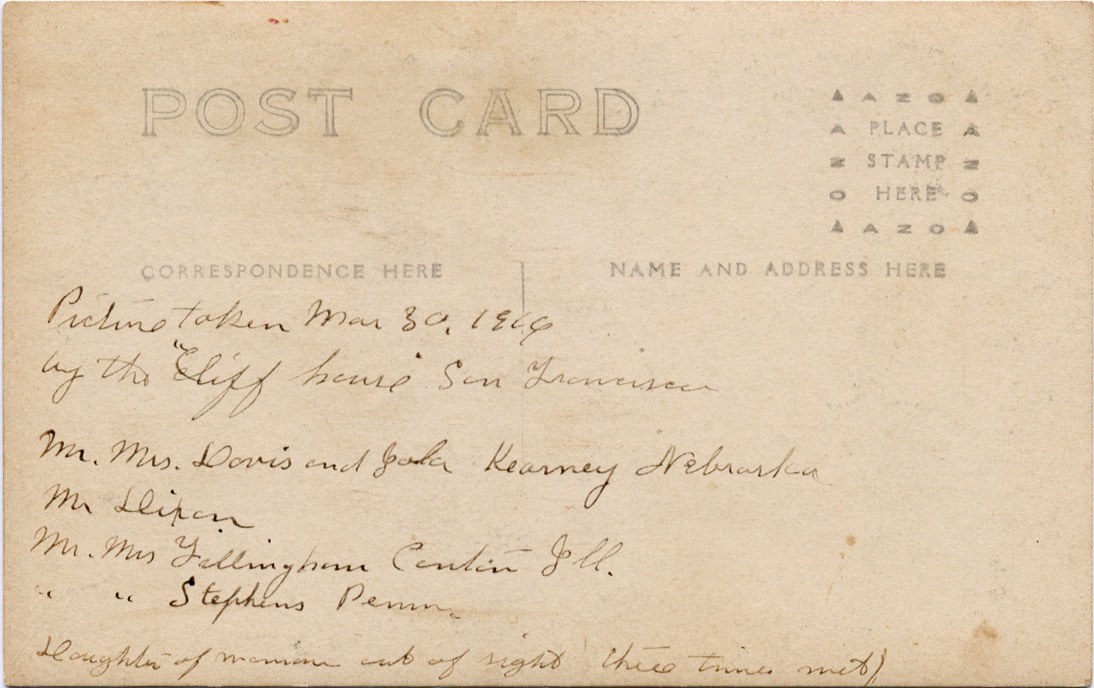 POST CARD
AZO
PLACE
STAMP
HERE
AZO
CORRESPONDENCE HERE
NAME AND ADDRESS HERE
Picture taken Mar 30, 19
by the "Cliff house" San Francisco
Mr. Mrs. Davis and Kearney Nebraska
Mr Dixon
Mr. Mrs Fillingham Canton Ill.
" " Stephens Penn.
Daughter of woman out of sight (three times met)